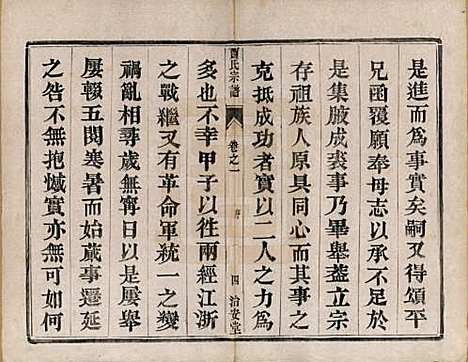 是進而爲事實矣嗣又得頌平
兄函覆願奉母志以承于是于
是集腋成裘事乃畢舉蓋立宗
存祖族人原具同心而其事之
克抵成功者實以二人之力爲
宗譜
卷之一
序
四
治安堂
多也不幸甲子以徃兩經江浙
之戰繼又有革命軍統一之變
禍亂相尋歲無寧日以是屢舉
屢輟五閱寒暑而始蕆事遷延
之咎不無抱憾實亦無可如何